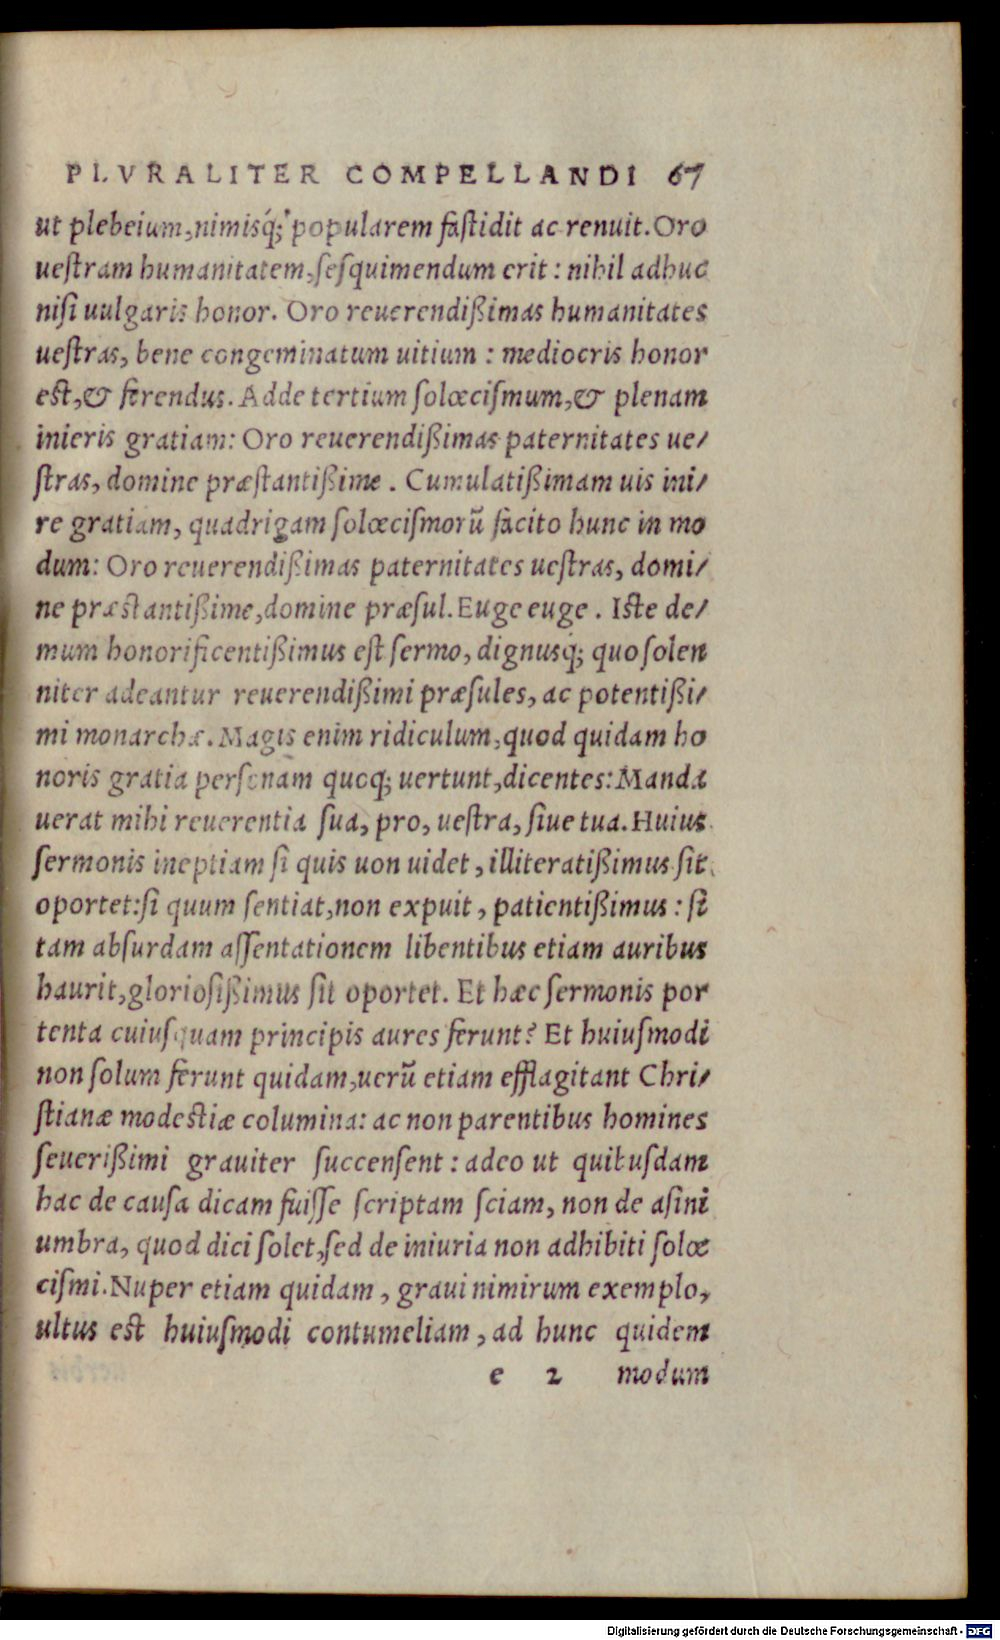 PLVRALITER COMPELLANDI 67
ut plebeium, nimisq́; popularem fastidit ac renuit. Oro
uestram humanitatem, sesquimendum erit: nihil adhuc
nisi uulgaris honor. Oro reuerendißimas humanitates
uestras, bene congeminatum uitium: mediocris honor
est, & ferendus. Adde tertium solœcismum, & plenam
inieris gratiam: Oro reuerendißimas paternitates ue/
stras, domine præstantißime. Cumulatißimam uis ini/
re gratiam, quadrigam solœcismorũ facito hunc in mo
dum: Oro reuerendißimas paternitates uestras, domi/
ne præstantißime, domine præsul. Euge euge. Iste de/
mum honorificentißimus est sermo, dignusq́; quo solen
niter adeantur reuerendißimi præsules, ac potentißi/
mi monarchæ. Magis enim ridiculum, quod quidam ho
noris gratia personam quoq; uertunt, dicentes: Manda
uerat mihi reuerentia sua, pro, uestra, siue tua. Huius
sermonis ineptiam si quis uon uidet, illiteratißimus sit
oportet: si quum sentiat, non expuit, patientißimus: si
tam absurdam assentationem libentibus etiam auribus
haurit, gloriosißimus sit oportet. Et hæc sermonis por
tenta cuiusquam principis aures ferunt? Et huiusmodi
non solum ferunt quidam, uerũ etiam efflagitant Chri/
stianæ modestiæ columina: ac non parentibus homines
seuerißimi grauiter succensent: adeo ut quibusdam
hac de causa dicam fuisse scriptam sciam, non de asini
umbra, quod dici solet, sed de iniuria non adhibiti solœ
cismi. Nuper etiam quidam, graui nimirum exemplo,
ultus est huiusmodi contumeliam, ad hunc quidem
e 2 modum
Digitalisierung gefördert durch die Deutsche Forschungsgemeinschaft - DFG